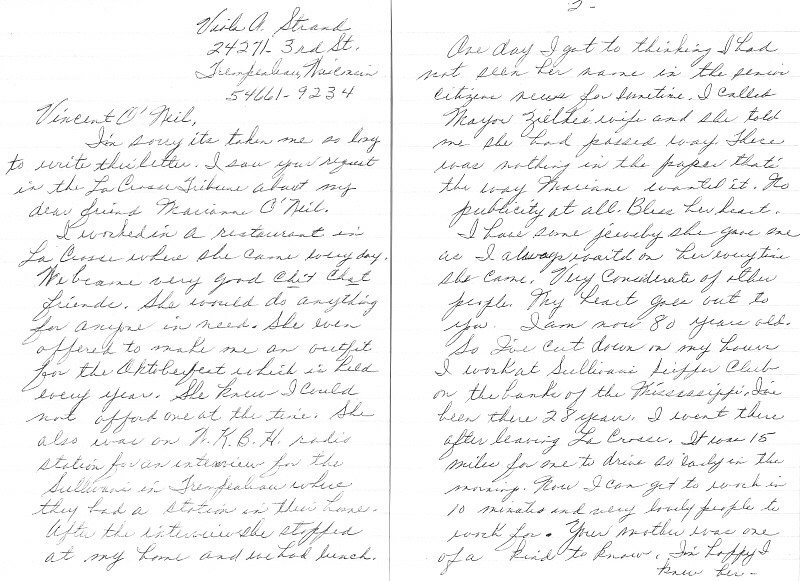 Viola A. Strand
24271 - 3rd St.
Trempealeau, Wisconsin
54661-9234
Vincent O'Neil,
I'm sorry its taken me so long
to write this letter. I saw your request
in the La Crosse Tribune about my
dear friend Marianne O'Neil.
I worked in a restaurant in
La Crosse where she came every day.
We became very good Chit Chat
friends. She would do anything
for anyone in need. She even
offered to make me an outfit
for the Oktoberfest which is held
every year. She knew I could
not afford one at the time. She
also was on W.K.B.H. radio
station for an interview for the
Sullivans in Trempealeau where
they had a station in their home.
After the interview she stopped
at my home and we had lunch.
2-
One day I got to thinking I had
not seen her name in the senior
citizens news for sometime. I called
Mayor Zielkes wife and she told
me she had passed way. There
was nothing in the paper thats
the way Marianne wanted it. No
publicity at all. Bless her heart.
I have some jewelry she gave me
as I always waited on her everytime
she came. Very Considerate of other
people. My heart goes out to
you. I am now 80 years old.
So I've cut down on my hours
I work at Sullivans Supper Club
on the banks of the Mississippi. I've
been there 28 years. I went there
after leaving La Crosse. It was 15
miles for me to drive so early in the
morning. Now I can get to work in
10 minutes and very lovely people to
work for. Your mother was one
of a kind to know. I'm happy I
knew her -